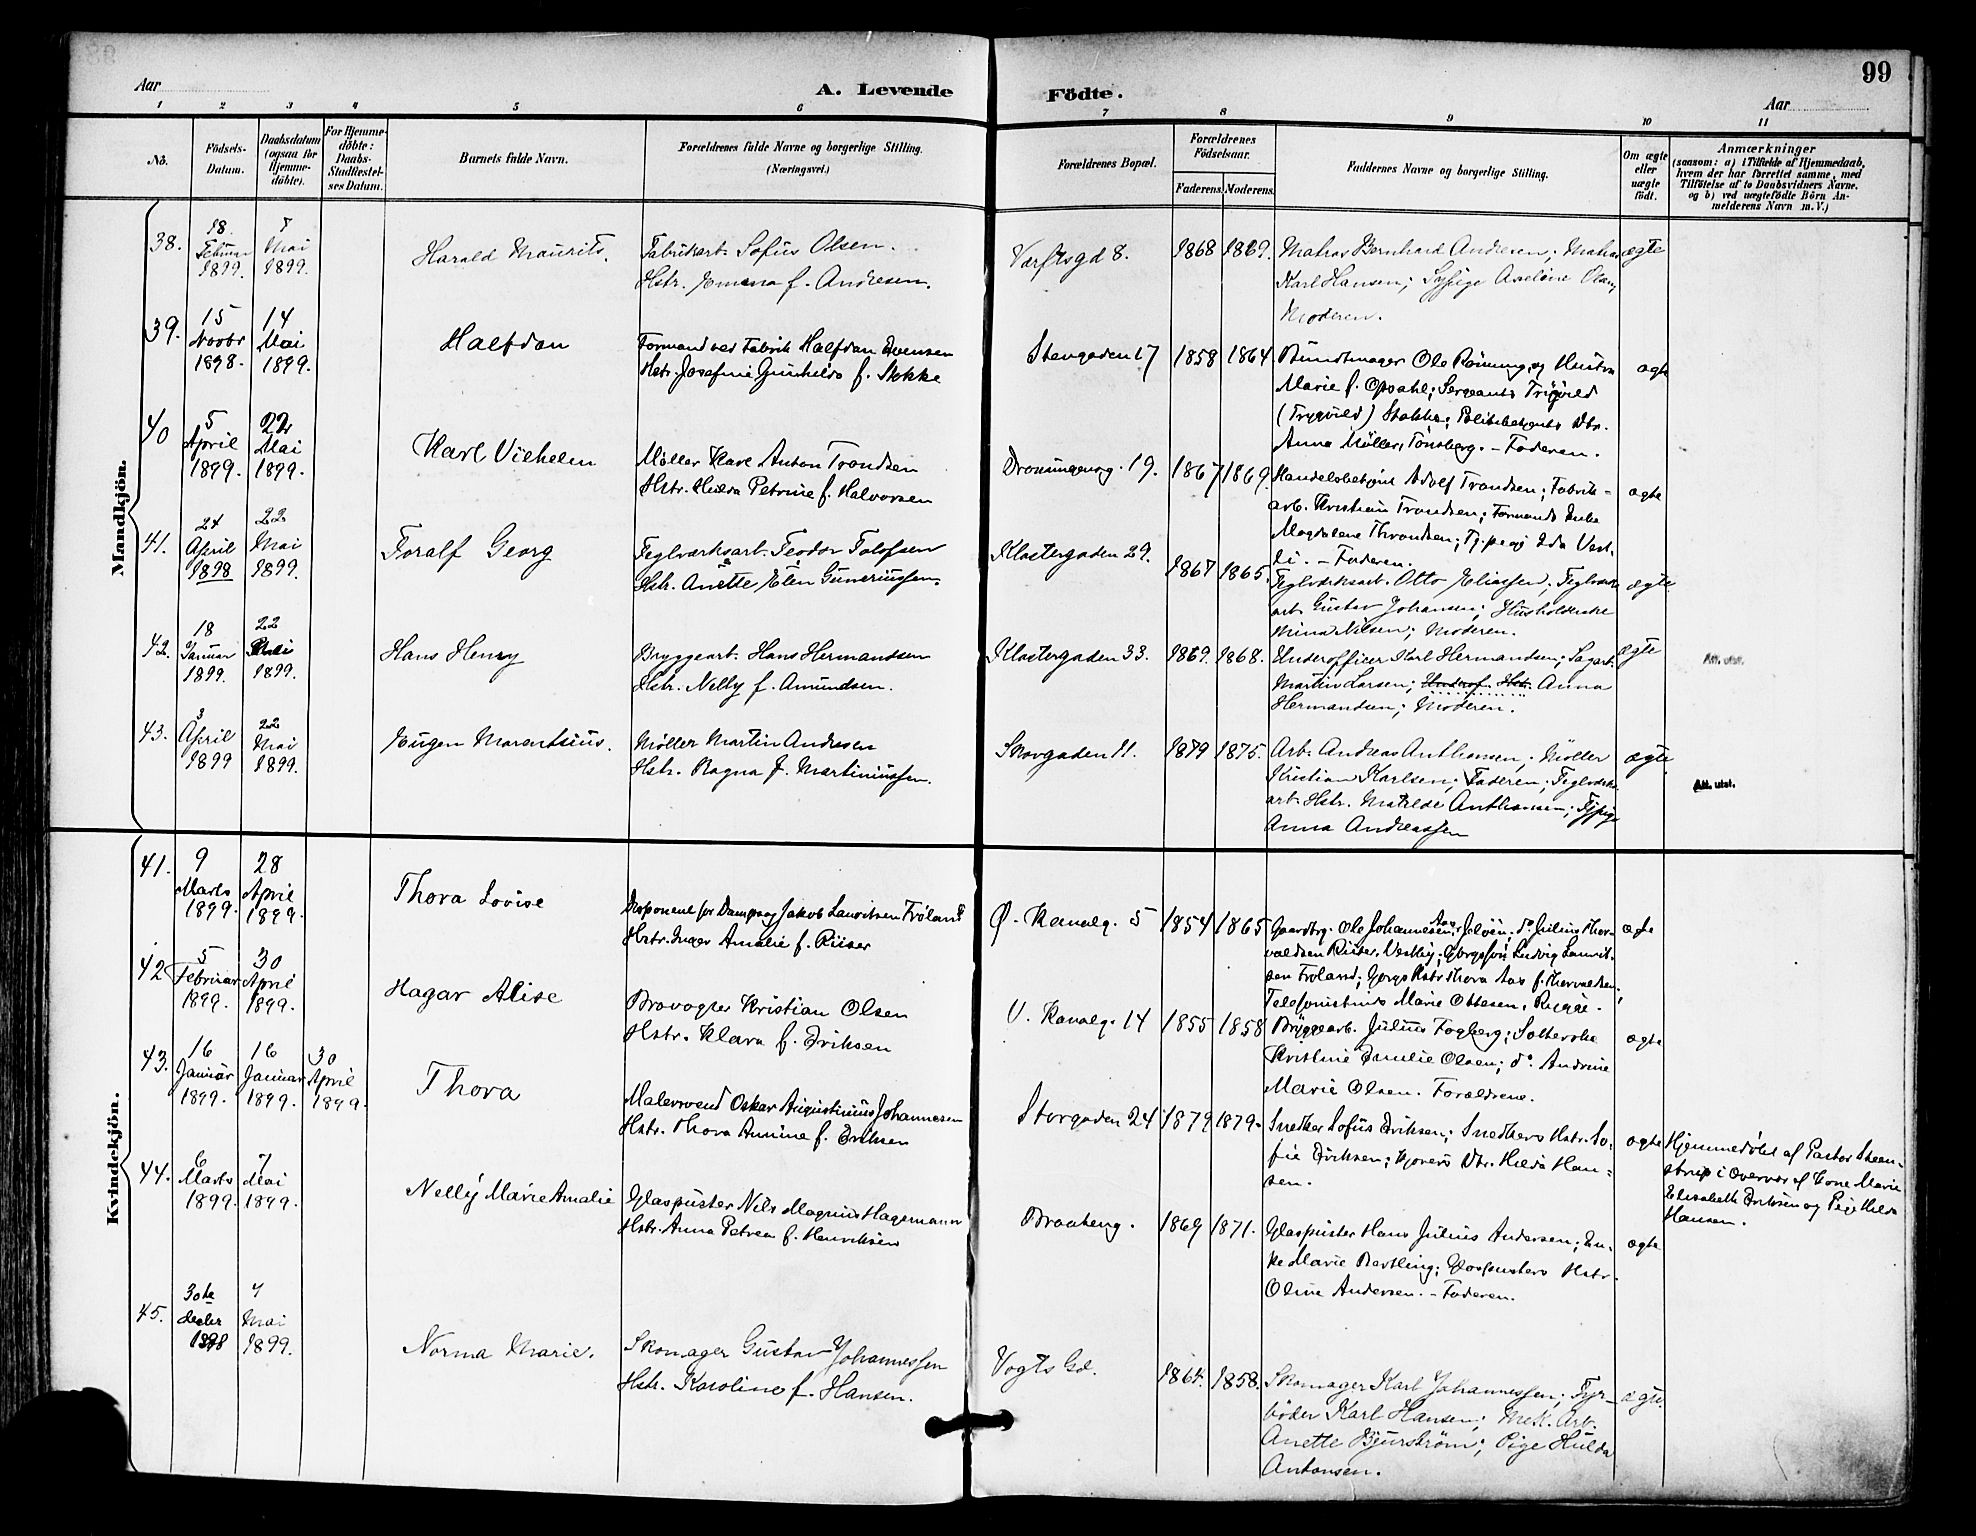 99
Aar
A. Levende Födte.
Aar
1 2 3 4 5 6 7 8 9 10 11
No.
Födsels-Datum.
Daabsdatum (ogsaa for Hjemme-döbte).
For Hjemme-döbte: Daabs-Stadfæstel-ses Datum.
Barnets fulde Navn.
Forældrenes fulde Navne og borgerlige Stilling.
(Næringsvei.)
Forældrenes Bopæl.
Forældrenes Födselsaar.
Faderens. Moderens.
Faddernes Navne og borgerlige Stilling.
Om ægte eller uægte födt.
Anmærkninger
(saasom: a) i Tilfælde af Hjemmedaab,
hvem der har forrettet samme, med
Tilföielse af to Daabsvidners Navne.
og b) ved uægtefödte Börn An-
melderens Navn m.V.)
Mandkjön.
38.
18. Februar 1899.
7 Mai 1899.
Harald Maurits.
Fabrikarb. Sofus Olsen.
Hstr. Emma f. Andresen.
Værftsgd 8.
1868 1869.
Matros Bernhard Andresen; Matros
Karl Hansen; Sypige Axeline Olsen,
Moderen.
ægte
39.
15 Novbr 1898.
14 Mai 1899.
Halfdan
Formand ved Fabrik Halfdan Evensen
Hstr. Josefine Gunhilda f. Stokke
Stengaden 17
1858 1864
Bundtmager Ole Rönning og Hustru
Marie f. Opdahl; Sergeant Trigvild
(Trygvild) Stokke; Politibetjents Dtr.
Anna Möller, Tönsberg. - Faderen.
ægte
40
5 April 1899.
22 Mai 1899.
Karl Vilhelm
Möller Karl Anton Trondsen
Hstr. Hulda Petrine f. Halvorsen
Dronningensg. 19.
1867 1869.
Handelsbetjent Adolf Trondsen; Fabrik-
arb. Kristian Trondsen; Formands Enke
Magdalene Throndsen; Tj.pige Ida Vest-
li. - Faderen.
ægte
41.
24 April 1898
22 Mai 1899.
Toralf Georg
Teglværksarb. Teodor Tolofsen
Hstr. Anette Elen Guneriussen.
Klostergaden 29.
1867 1865.
Teglværksarb. Otto Eliassen; Teglværks
arb. Gustav Johansen; Husholderske
Mina Nilsen; Moderen.
ægte
42.
18 Januar 1899.
22 Mai 1899.
Hans Henry
Bryggearb. Hans Hermandsen
Hstr. Nelly f. Amundsen.
Klostergaden 33.
1869. 1868.
Underofficer Karl Hermandsen; Sagarb.
Martin Larsen; Underof. Hstr. Anna
Hermandsen; Moderen.
ægte
Att. utst.
43.
3 April 1899
22 Mai 1899.
Eugen Marentsius.
Möller Martin Andresen
Hstr. Ragna f. Martiniussen.
Skovgaden 11.
1879 1875.
Arb. Andreas Anthonsen; Möller
Kristian Karlsen; Faderen; Teglværks
arb. Hstr. Matilde Anthonsen; Tj.pige
Anna Andreassen
ægte
Att. utst.
Kvindekjön.
41.
9 Marts 1899.
28 April 1899.
Thora Lovise
Disponent for Dampsag Jakob Lauritsen Fröland
Hstr. Inger Amalie f. Riiser
Ö. Kanalg. 5
1854 1865
Gaardbrg. Ole Johannesen Aas, Jelöen; do Julius Thor-
valdsen Riiser, Vestby; Gbrgssön Ludvig Laurit-
sen Froland; Gbrgs Hstr. Thora Aas f. Thorvaldsen;
Telefonistinde Marie Ottesen, Rygge.
ægte
42
5 Februar 1899.
30 April 1899.
Hagar Alise
Brovogter Kristian Olsen
Hstr. Klara f. Eriksen
V. Kanalg. 14
1855 1858
Bryggearb. Julius Fagberg; Salterske
Kristine Emilie Olsen; do Andrine
Marie Olsen. Forældrene.
ægte
43.
16 Januar 1899.
16 Januar 1899.
30 April 1899.
Thora
Malersvend Oskar Augustinius Johannesen
Hstr. Thora Annine f. Eriksen
Storgaden 24
1879 1879.
Snedker Sofus Eriksen; Snedkers Hstr. So-
fie Eriksen; Kjøreres Dtr. Hilda Han-
sen.
ægte
Hjemmedöbt af Pastor Steen-
strup i overvær af Kone Marie
Elisabeth Eriksen og Pige Hilda
Hansen.
44.
6 Marts 1899.
7 Mai 1899.
Nelly Marie Amalie
Glaspuster Nils Magnus Hagemann
Hstr. Anna Petrea f. Henriksen
Braateng.
1869 1871.
Glaspuster Hans Julius Andersen; En-
ke Marie Bertling; Glaspusters Hstr.
Oline Andersen. - Faderen.
ægte
45.
30te Decbr 1898
7 Mai 1899.
Norma Marie.
Skomager Gustav Johannessen
Hstr. Karoline f. Hansen.
Vogts Gd.
1864. 1858.
Skomager Karl Johannessen; Fyr-
böder Karl Hansen; Mek. Arb.
Anette Bjurström; Pige Hulda
Antonsen.
ægte.